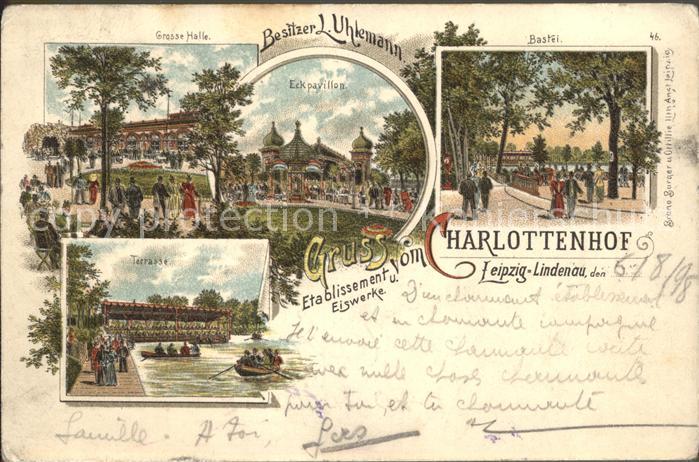 Grosse Halle.
Besitzer L. Uhlemann
Eckpavillon.
Bastei.
46.
Terrasse.
Gruss vom CHARLOTTENHOF
Etablissement u.
Eiswerke.
Leipzig-Lindenau, den 6/8/98
D'un charmant établissement
et en charmante compagnie
Je t'envoie cette charmante carte
avec mille choses charmantes
pour toi, et ta charmante
famille. A toi,
Bruno Bürger u. Ottillie, lith. Anst. Leipzig.
copyright postkarte